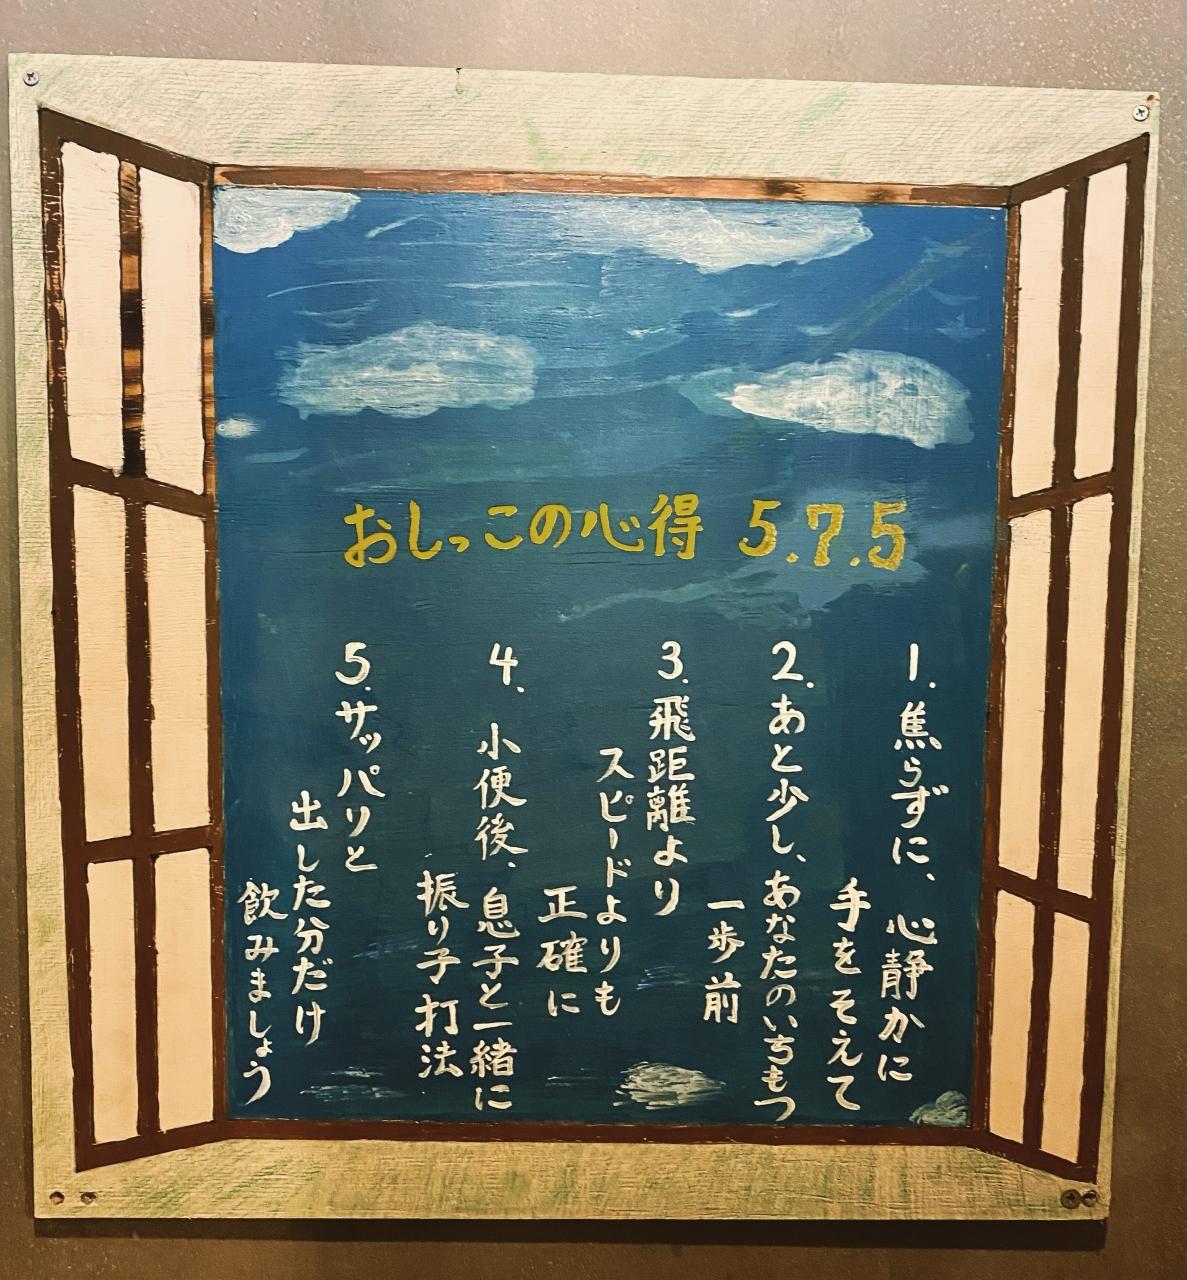 おしっこの心得 5.7.5
1.焦らずに、心静かに
手をそえて
2.あと少し、あなたのいちもつ
一歩前
3.飛距離より
スピードよりも
正確に
4、小便後、息子と一緒に
振り子打法
5.サッパリと
出した分だけ
飲みましょう